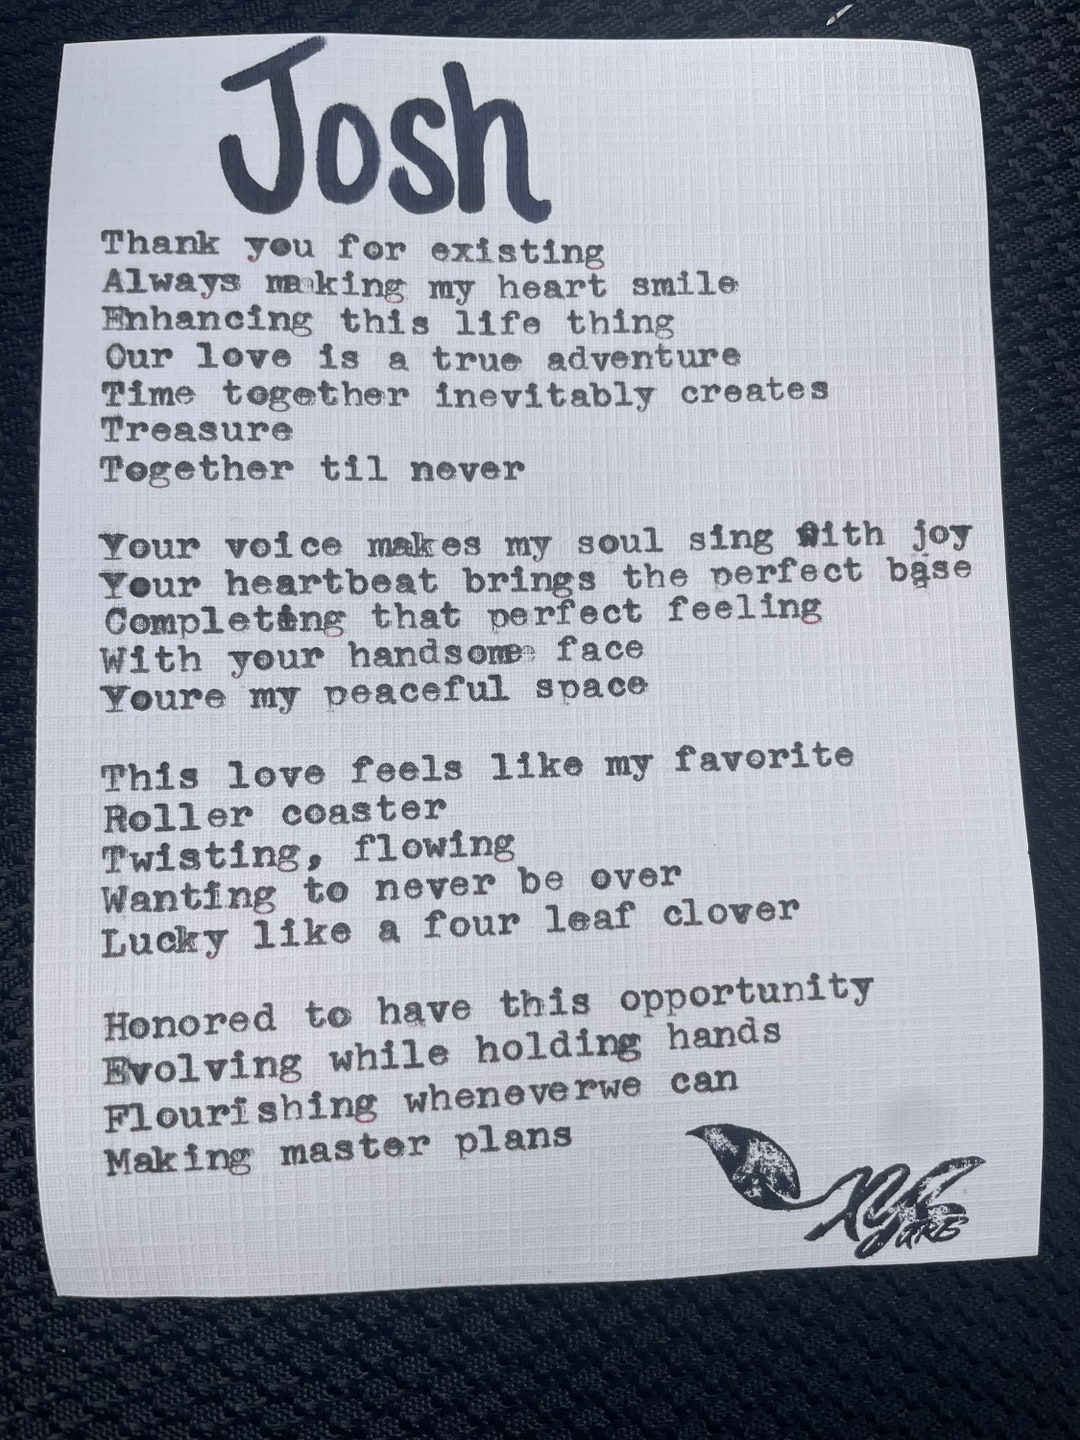 Josh
Thank you for existing
Always making my heart smile
Enhancing this life thing
Our love is a true adventure
Time together inevitably creates
Treasure
Together til never
Your voice makes my soul sing with joy
Your heartbeat brings the perfect base
Completing that perfect feeling
With your handsome face
Youre my peaceful space
This love feels like my favorite
Roller coaster
Twisting, flowing
Wanting to never be over
Lucky like a four leaf clover
Honored to have this opportunity
Evolving while holding hands
Flourishing wheneverwe can
Making master plans